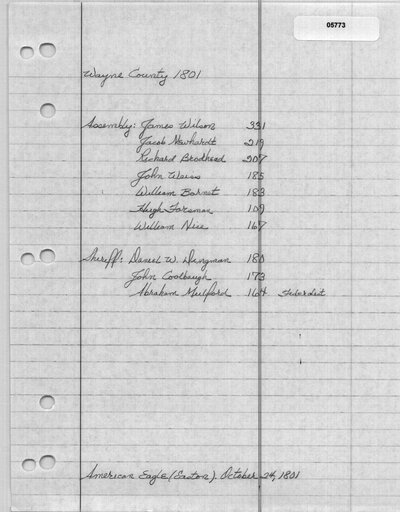 05773
Wayne County 1801
Assembly: James Wilson 331
Jacob Newhardt 219
Richard Brodhead 207
John Weiss 185
William Barnet 183
Hugh Forsman 109
William Nice 167
Sheriff: Daniel W. Dingman 180
John Coolbaugh 173
Abraham Mulford 164 Federalist
American Eagle (Easton). October 24, 1801